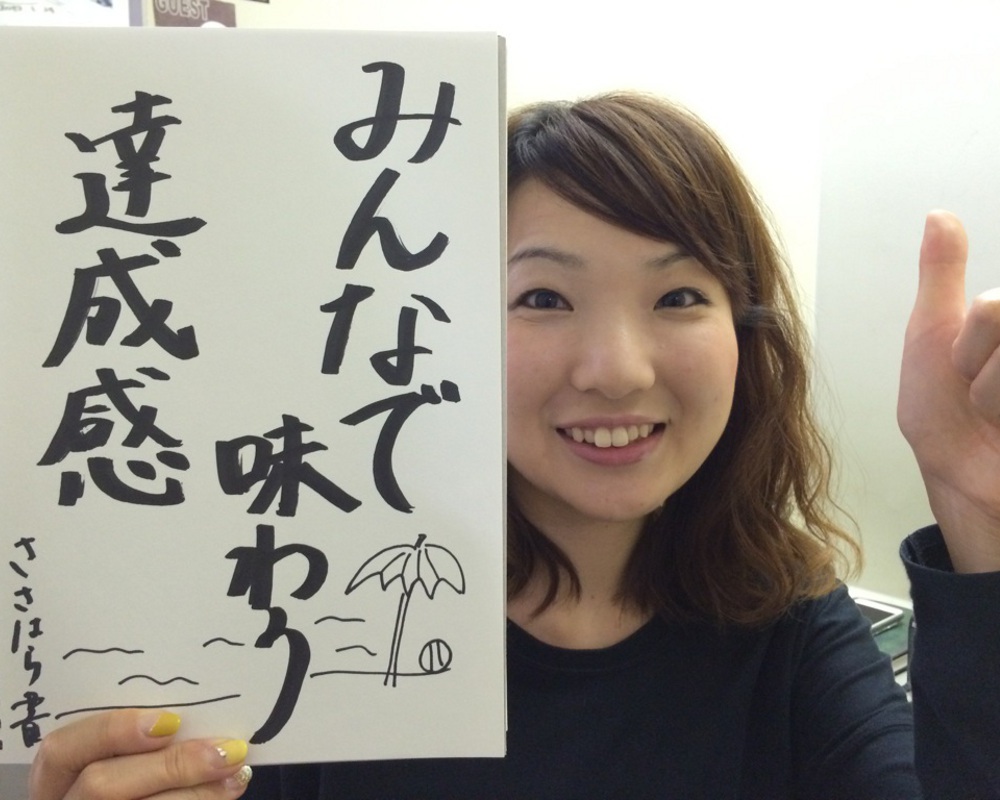 みんなで
味わう
達成感
ささはら書
GUEST